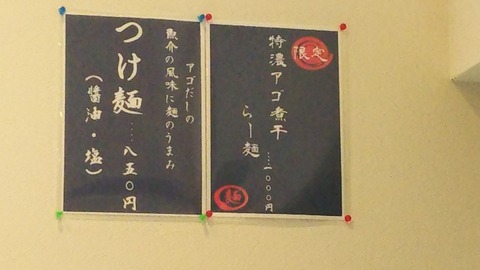 限定
特濃アゴ煮干
らー麺
....一〇〇〇円
麺
アゴだしの
魚介の風味に麺のうまみ
つけ麺....八五〇円
（醤油・塩）